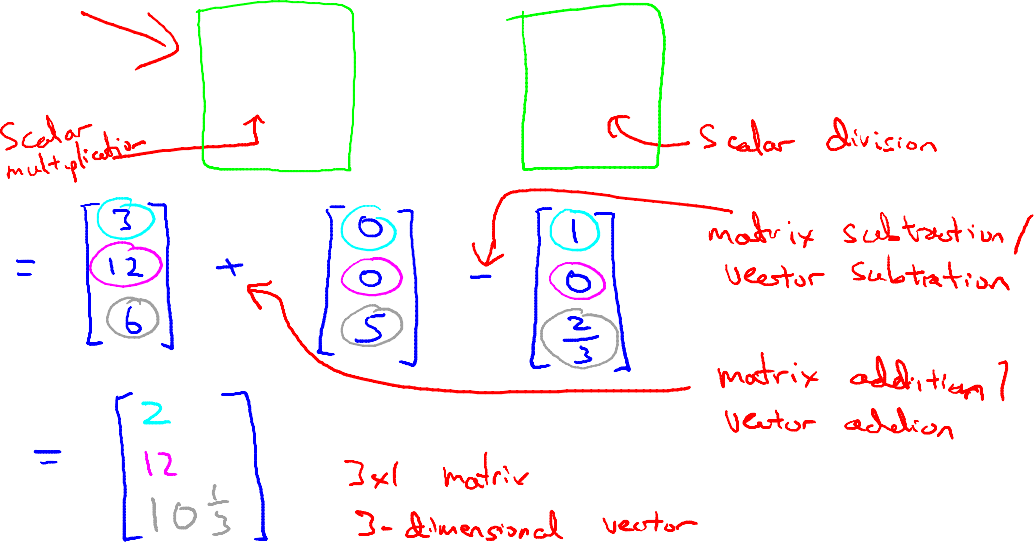 Scalar
multiplication
Scalar division
= [3 12 6] + [0 0 5] - [1 0 2/3]
matrix subtraction/
vector subtration
matrix addition/
vector addion
= [2 12 10 1/3]
3x1 matrix
3-dimensional vector